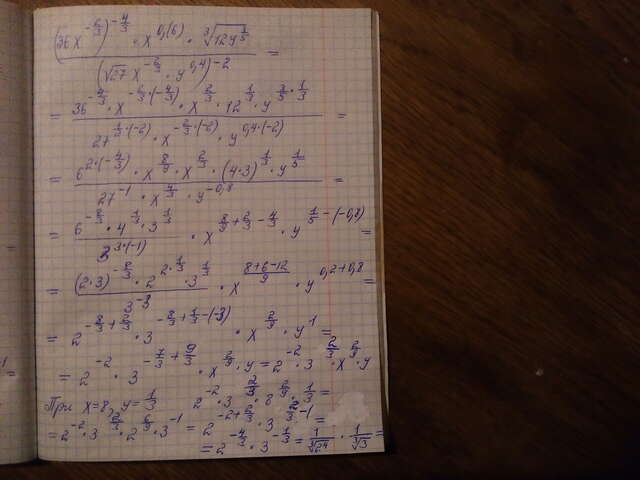 (36x^{-2/3})^{-4/3} · x^{0,(6)} · ∛(12y^{3/5})
/ (√27 x^{-2/3} · y^{0,4})^{-2} =
= 36^{-4/3} · x^{-2/3·(-4/3)} · x^{2/3} · 12^{1/3} · y^{3/5·1/3}
/ 27^{1/2·(-2)} · x^{-2/3·(-2)} · y^{0,4·(-2)} =
= 6^{2·(-4/3)} · x^{8/9} · x^{2/3} · (4·3)^{1/3} · y^{1/5}
/ 27^{-1} · x^{4/3} · y^{-0,8} =
= 6^{-8/3} · 4^{1/3} · 3^{1/3} / 3^{3·(-1)} · x^{8/9+2/3-4/3} · y^{1/5-(-0,8)} =
= (2·3)^{-8/3} · 2^{2·1/3} · 3^{1/3} / 3^{-3} · x^{(8+6-12)/9} · y^{0,2+0,8} =
= 2^{-8/3+2/3} · 3^{-8/3+1/3-(-3)} · x^{2/9} · y^1 =
= 2^{-2} · 3^{-7/3+9/3} · x^{2/9} · y = 2^{-2} · 3^{2/3} · x^{2/9} · y
При x=8, y=1/3 2^{-2} · 3^{2/3} · 8^{2/9} · 1/3 =
= 2^{-2} · 3^{2/3} · 2^{2/3} · 3^{-1} = 2^{-2+2/3} · 3^{2/3-1} =
= 2^{-4/3} · 3^{-1/3} = 1/∛(2^4) · 1/∛3 =